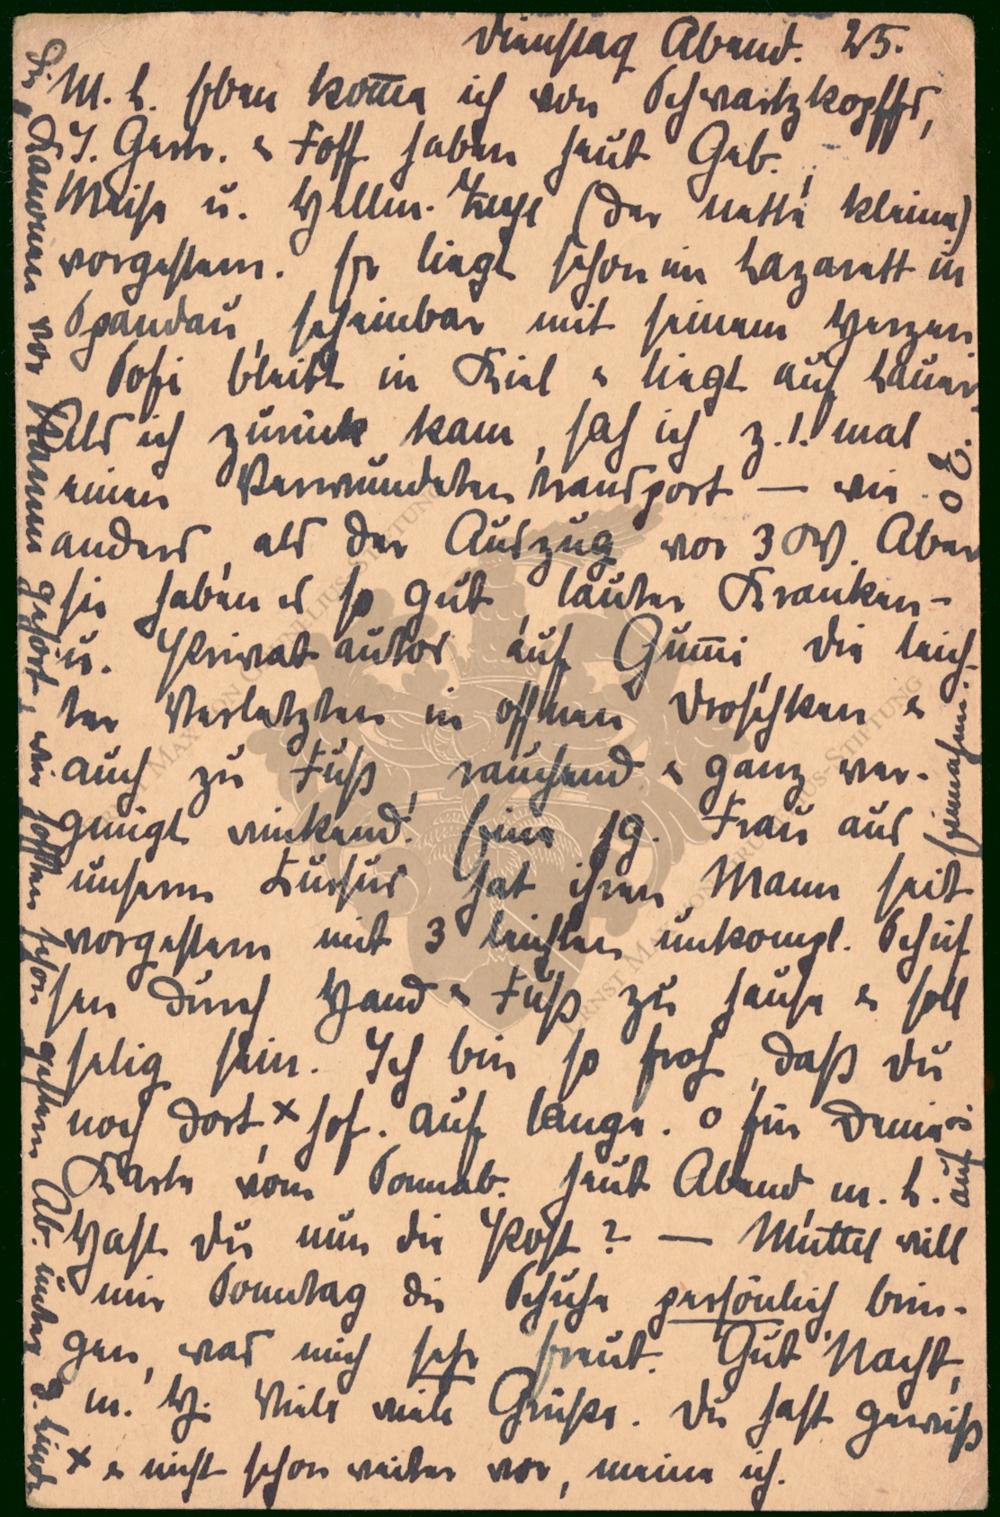 Dienstag Abend. 25.
M. L. Eben komme ich von Schwartzkopffs,
T. Gertr. & Toff haben heut Geb.,
Meise u. Hellm. (der nette kleine)
vorgestern. Er liegt schon im Lazarett in
Spandau, scheinbar mit seinem Herzen.
Sofi bleibt in Kiel & liegt auf Lauer.
Als ich zurück kam, sah ich z. 1. mal
einen Verwundetentransport — wie
anders, als der Auszug vor 3 W. Aber
sie haben es so gut, lauter Kranken-
u. Privatautos auf Gummi, die leich-
ter Verletzten in offnen Droschken &
auch zu Fuß, rauchend & ganz ver-
gnügt winkend! Eine jg. Frau aus
unserm Kursus hat ihren Mann seit
vorgestern mit 3 leichten unkompl. Schüs
sen durch Hand & Fuß zu Hause & soll
selig sein. Ich bin so froh, daß Du
noch dort × hof. auf lange. o für Deine
Karte vom Sonnab. heut Abend, m. L.
Hast Du nun die Post? — Muttel will
mir Sonntag die Schuhe persönlich brin-
gen, was mich sehr freut. Gut Nacht,
m. H. Viele viele Grüße. Du hast gewiß
× & nicht schon weiter vor, meine ich.
Die Kanonen vor Namur gehört, wir hofften schon gestern Ab. unter d. Lind
auf Einnahme!
D. E.